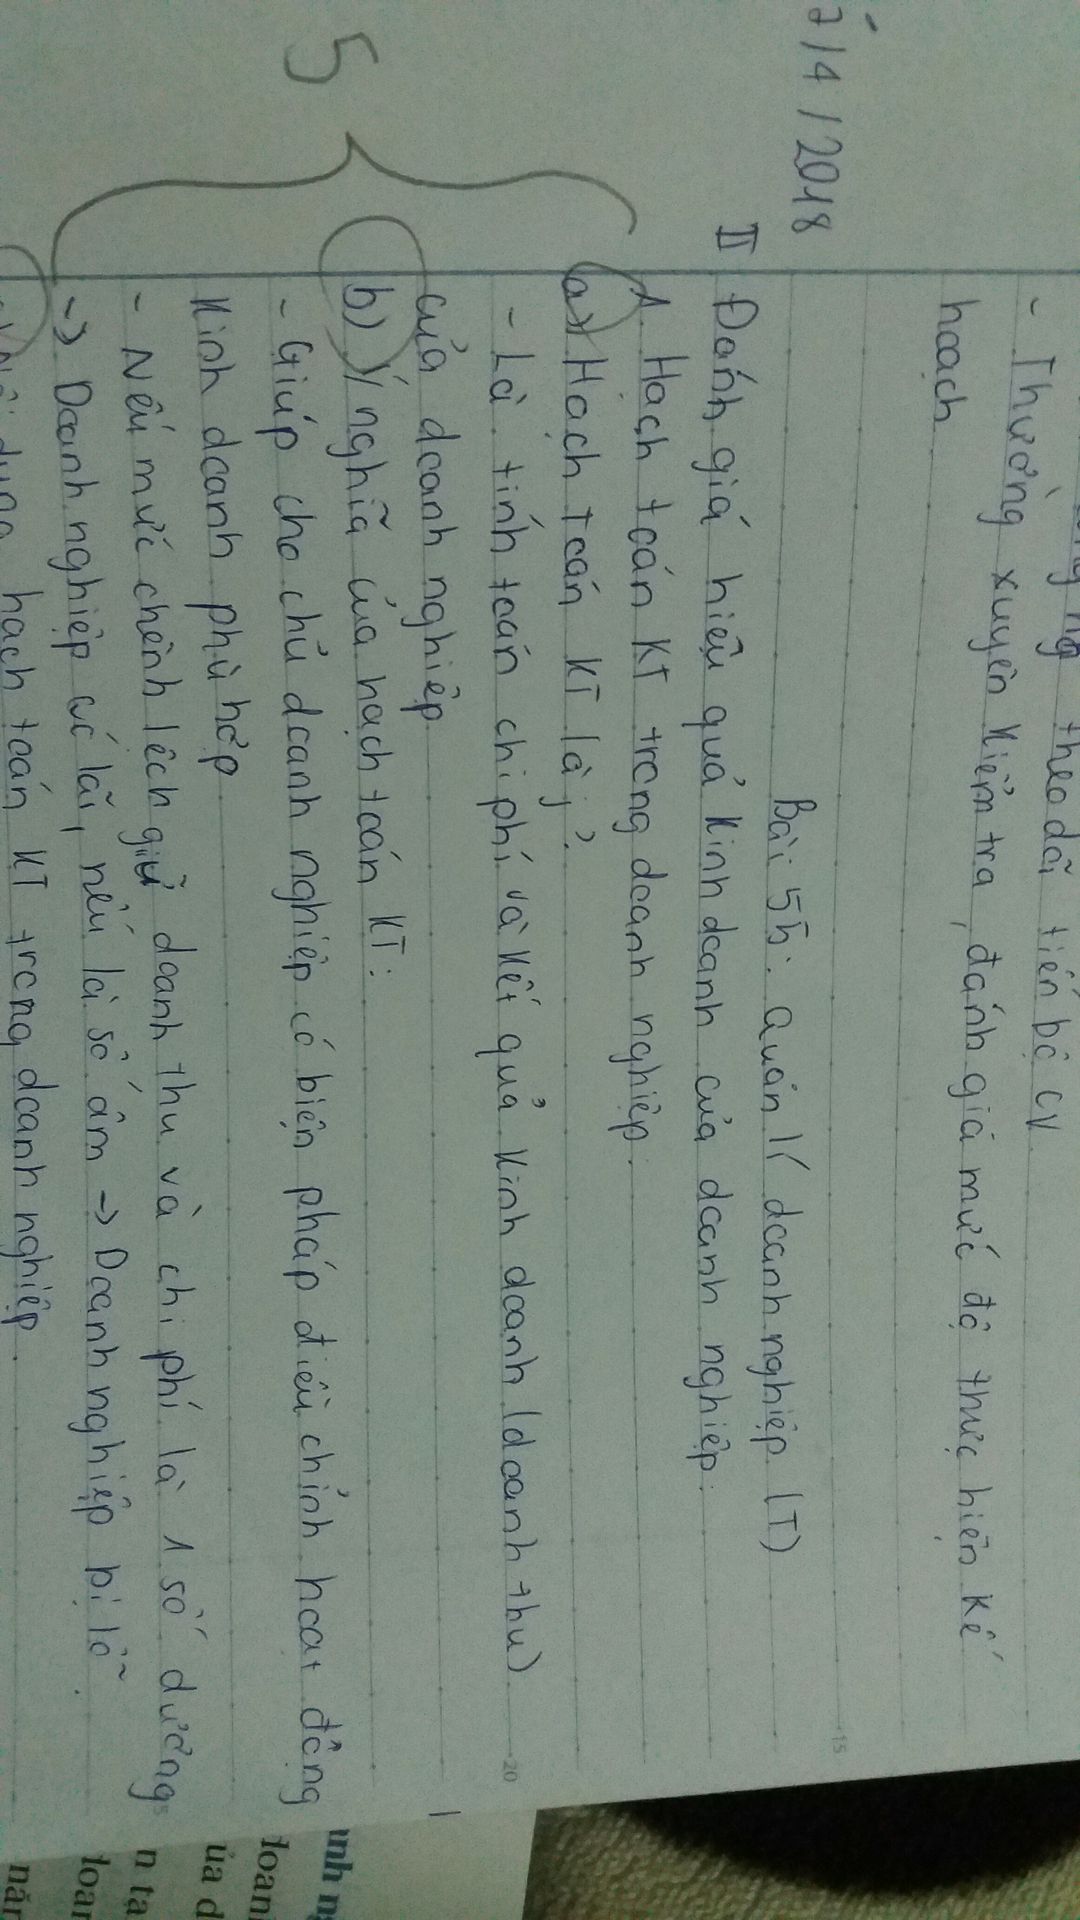 theo dõi tiến bộ CV
- Thường xuyên kiểm tra, đánh giá mức độ thực hiện kế
hoạch
/4/2018
Bài 55: Quản lí doanh nghiệp (T)
II Đánh giá hiệu quả kinh doanh của doanh nghiệp:
1. Hạch toán KT trong doanh nghiệp:
a) Hạch toán KT là j?
- Là tính toán chi phí và kết quả kinh doanh (doanh thu)
của doanh nghiệp
b) Ý nghĩa của hạch toán KT:
- Giúp cho chủ doanh nghiệp có biện pháp điều chỉnh hoạt động
kinh doanh phù hợp
- Nếu mức chênh lệch giữ doanh thu và chi phí là 1 số dương
-> Doanh nghiệp có lãi, nếu là số âm -> Doanh nghiệp bị lỗ.
dung hạch toán KT trong doanh nghiệp.
5
15
20